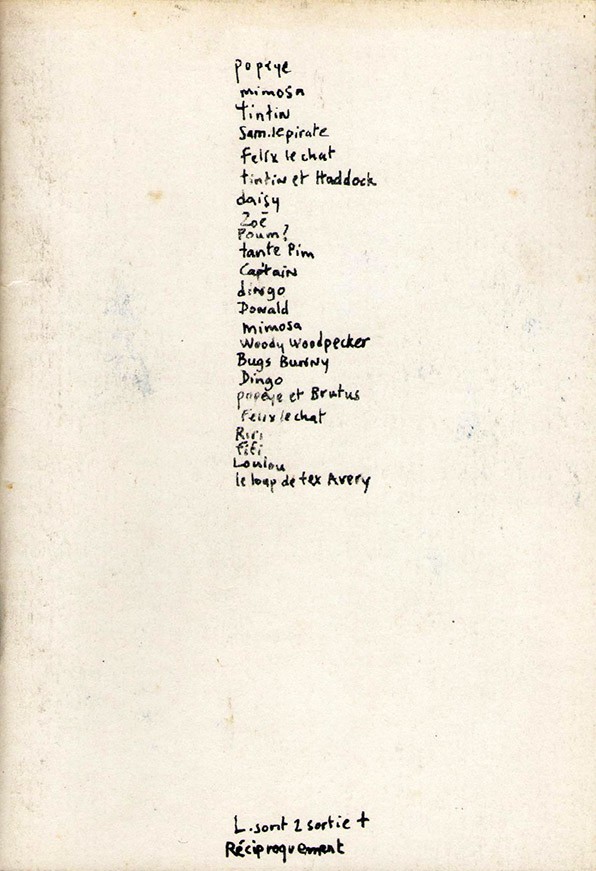 popeye
mimosa
tintin
Sam.lepirate
Felix le chat
tintin et Haddock
daisy
Zoé
Poum?
tante Pim
Captain
dingo
Donald
mimosa
Woody Woodpecker
Bugs Bunny
Dingo
popeye et Brutus
Felix le chat
Riri
fifi
Loulou
le loup de tex Avery
L.sont 2 sortie +
Réciproquement